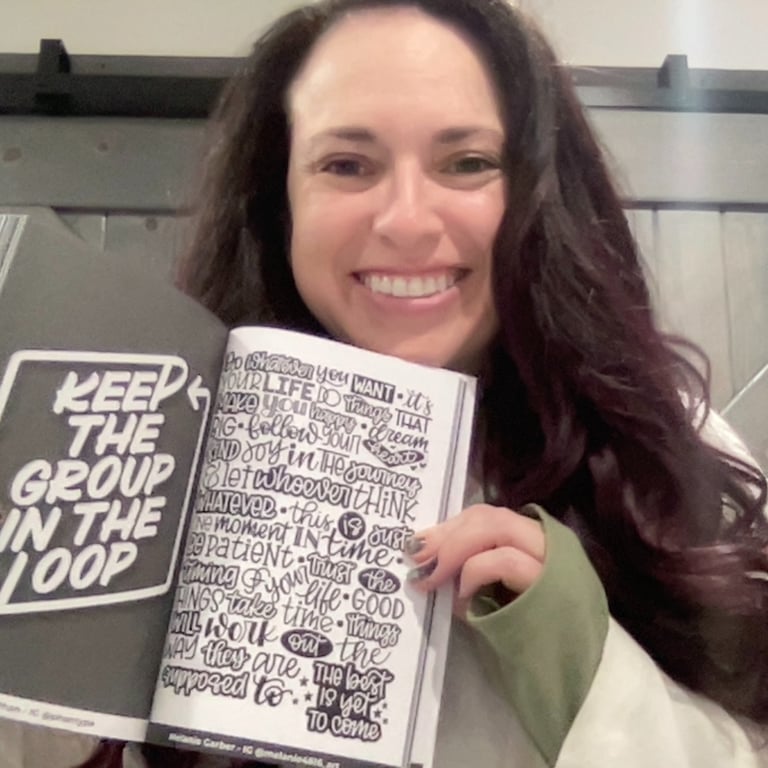 KEEP
THE
GROUP
IN THE
LOOP
IG @pharrtype
Do whatever you WANT • it's
YOUR LIFE DO things THAT
MAKE you happy • dream
BIG • follow your heart
FIND JOY in THE journey
& let whoever THINK
WHATEVER • this is just
one moment IN time •
Be patient • trust the
timing of your life • GOOD
THINGS take time • things
WILL work out the
WAY they are
supposed to
THE best
IS yet
TO come
Melanie Garber - IG @melanie4816_art